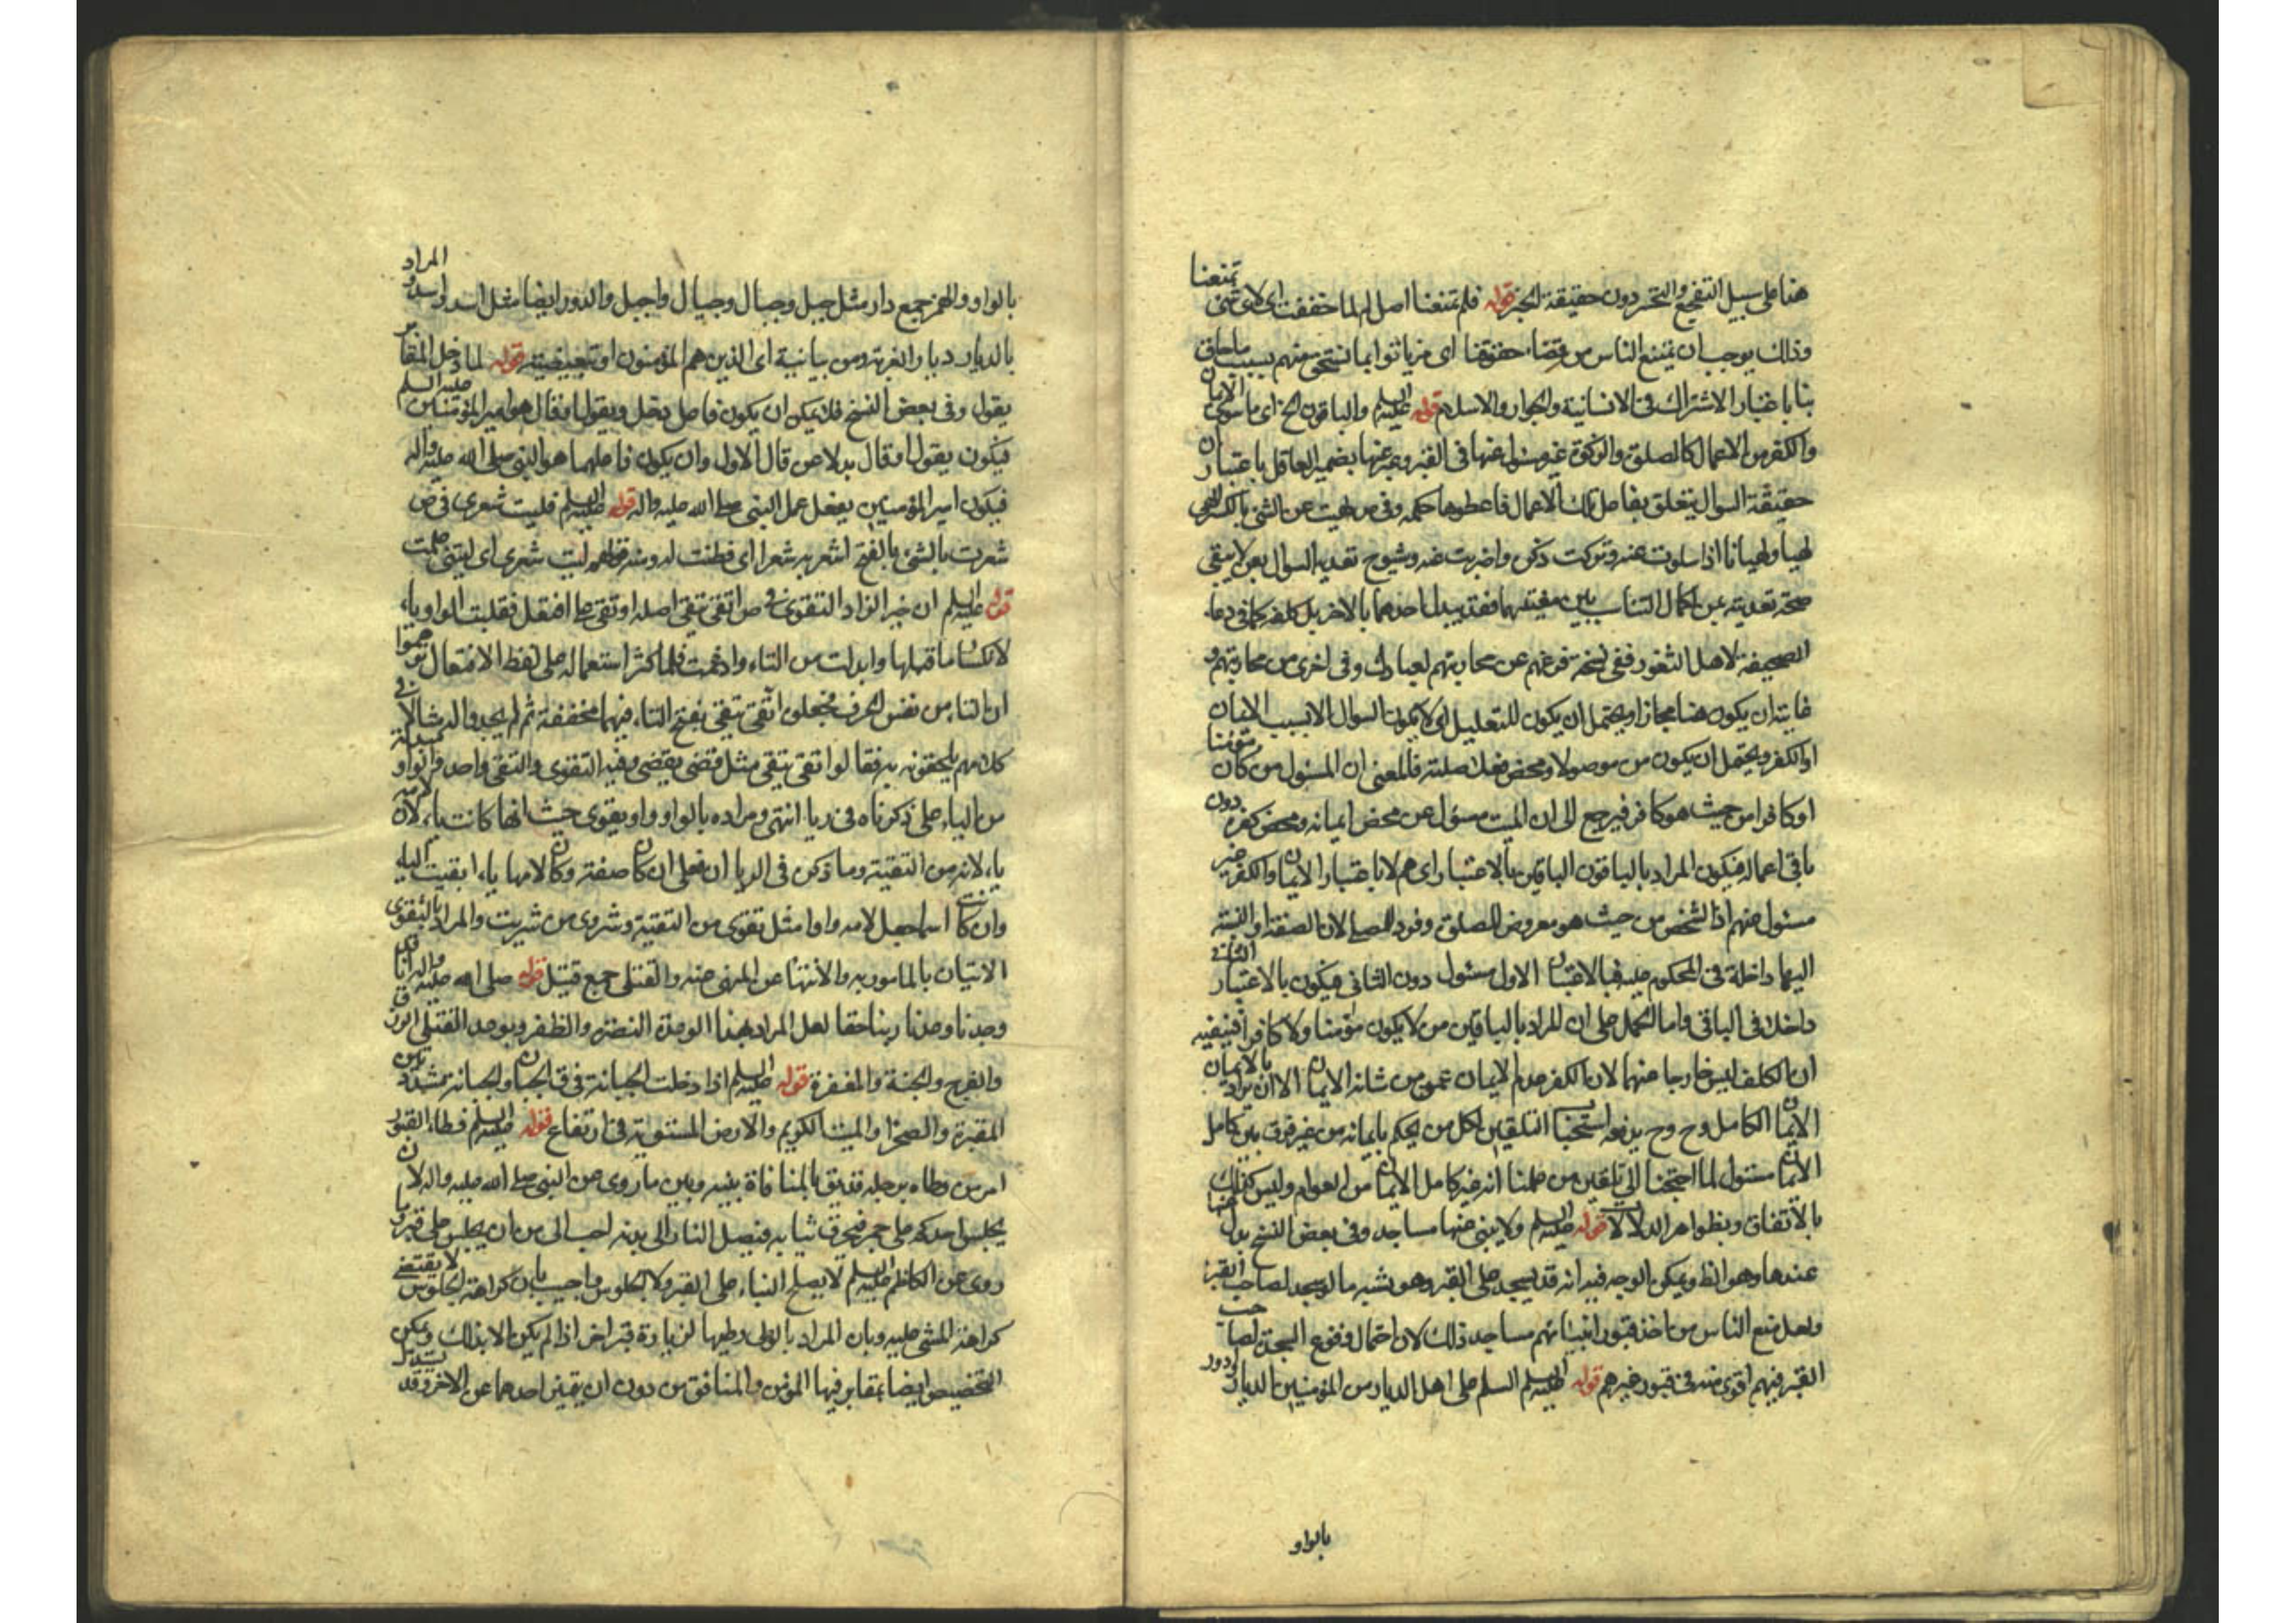 هنا على سبيل التفجع والتحسر دون حقيقة الخبر قوله فلم تمنعنا اصل لم لما خففت اى لاى شئ تمنعنا
وذلك يوجب ان يمتنع الناس من قضاء حقوقنا اى مزيا توا بما نستحق منهم بسبب ما حاق
بنا باعتبار الاشتراك فى الانسانية والجوار والاسلام قوله عليه السلم والباقون الخ اى ما سوى الايمان
والكفر من الاعمال كالصلوة والزكوة غير مسئول عنها فى القبر وعبر عنها بضمير العاقل باعتبار ان
حقيقة السوال يتعلق بفاعل تلك الاعمال فاعطوها حكمه وفى ص لهيت عن الشئ بالكسر الهى
لهيا ولهيانا اذا سلوت عنه وتركت ذكره واضربت عنه وشيوع تعدية السوال بعن لا يبقى
صحة تعديته بمن لكمال التناسب بين معنييهما فقد يبدل احدهما بالاخر بلا كلفة كما فى دعاء
الصحيفة لاهل الثغور ففى نسخة فرغهم عن محاربتهم لعبادتك وفى اخرى من محاربتهم و
غايته ان يكون هنا مجازا ويحتمل ان يكون للتعليل اى لا يكون السوال الا بسبب الايمان
او الكفر ويحتمل ان يكون من موصولا ومحض فعلا صلته فالمعنى ان المسئول من كان مؤمنا
او كافرا من حيث هو كافر فيرجع الى ان الميت مسئول عن محض ايمانه ومحض كفره دون
باقى اعماله فيكون المراد بالباقون الباقين بالاعتبار اى هم لا باعتبار الايمان والكفر غير
مسئول عنهم اذ الشخص من حيث هو معروض للصلوة وفرد للمصلى لان الصفة او النسبة
اليها داخلة فى المحكوم عليه فبالاعتبار الاول مسئول دون الثانى فيكون بالاعتبار الثانى
داخلا فى الباقى واما الحمل على ان المراد بالباقين من لا يكون مؤمنا ولا كافرا فينفيه
ان المكلف ليس خارجا عنهما لان الكفر عدم الايمان عمن من شانه الايمان الا ان يراد بالايمان
الايمان الكامل وح يدفعه استحباب التلقين لكل من يحكم بايمانه من غير فرق بين كامل
الايمان مسئول لما احتجنا الى تلقين من علمنا انه غير كامل الايمان من العوام وليس كذلك
بالاتفاق وبظواهر الدلالات قوله عليه السلم ولا يبنى عنها مساجد وفى بعض النسخ بدل عنها
عندها وهو الظ ويمكن الوجه فيه انه قد يسجد على القبر وهو يشبه ما لو سجد لصاحب القبر
ولعل منع الناس من اخذ قبور انبيائهم مساجد ذلك لان احتمال وقوع السجدة لصاحب
القبر فيهم اقوى منه فى قبور غيرهم قوله عليه السلم السلم على اهل الديار من المؤمنين الديار ودور
بالواو
بالواو والهمز جمع دار مثل جبل وجبال وجيال واجبل والدور ايضا مثل اسد واسد والمراد
بالديار ديار الغربة ومن بيانية اى الذين هم المؤمنون او تبعيضية قوله لما دخل المقابر
يقول وفى بعض النسخ فلا يمكن ان يكون فاعل دخل ويقول او قال هو امير المؤمنين عليه السلم
فيكون يقول او قال بدلا من قال الاول وان يكون فاعلهما هو النبى صلى الله عليه واله
فيكون امير المؤمنين يفعل عمل النبى صلى الله عليه واله قوله عليه السلم فليت شعرى فى ص
شعرت بالشئ بالفتح اشعر به شعرا اى فطنت له ومنه قولهم ليت شعرى اى ليتنى علمت
قوله عليه السلم ان خير الزاد التقوى فى ص اتقى يتقى اصله اوتقى على افتعل فقلبت الواو ياء
لانكسار ما قبلها وابدلت من التاء وادغمت فلما كثر استعماله على لفظ الافتعال توهموا
ان التاء من نفس الحرف فجعلوه اتقى يتقى بفتح التاء فيهما مخففة ثم لم يجدوا له مثالا فى
كلامهم يلحقونه به فقالوا تقى يتقى مثل قضى يقضى وفيه التقوى والتقى واحد والواو مبدلة
من الياء على ذكرناه فى ريا انتهى ومراده بالواو واو تقوى حيث انها كانت ياء لان لامه
ياء لانه من التقية وما ذكره فى الريا ان فعلى ان كان صفة وكان لامها ياء ابقيت الياء
وان كان اسما جعل لامه واوا مثل تقوى من التقية وشروى من شريت والمراد بالتقوى
الاتيان بالمامور به والانتهاء عن المنهى عنه والقتلى جمع قتيل قوله صلى الله عليه واله انا قد
وجدنا وعدنا ربنا حقا لعل المراد بهذا الوعد النصرة والظفر وبوعد القتلى الفوز
والفرح والجنة والمغفرة قوله عليه السلم اذا دخلت الجبانة فى ق الجبان والجبانة مشددتين
المقبرة والصحراء والمنبت الكريم والارض المستوية فى ارتفاع قوله عليه السلم فطاء القبور
امر من وطاه برجله فقد يق بالمنافاة بينه وبين ما روى من النبى صلى الله عليه واله لان
يجلس احدكم على جمر فيحرق ثيابه فيصل النار الى بدنه احب الى من ان يجلس على قبر وما
روى عن الكاظم عليه السلم لا يصلح البناء على القبر ولا الجلوس واجيب بان كراهة الجلوس لا يقتضى
كراهة المشى عليه وبان المراد بالوطى وطيها لزيارة قبر اخر اذا لم يكن الا بذلك ويمكن
التخصيص ايضا بمقابر فيها المؤمن والمنافق من دون ان يتميز احدهما عن الاخر وقد يستدل